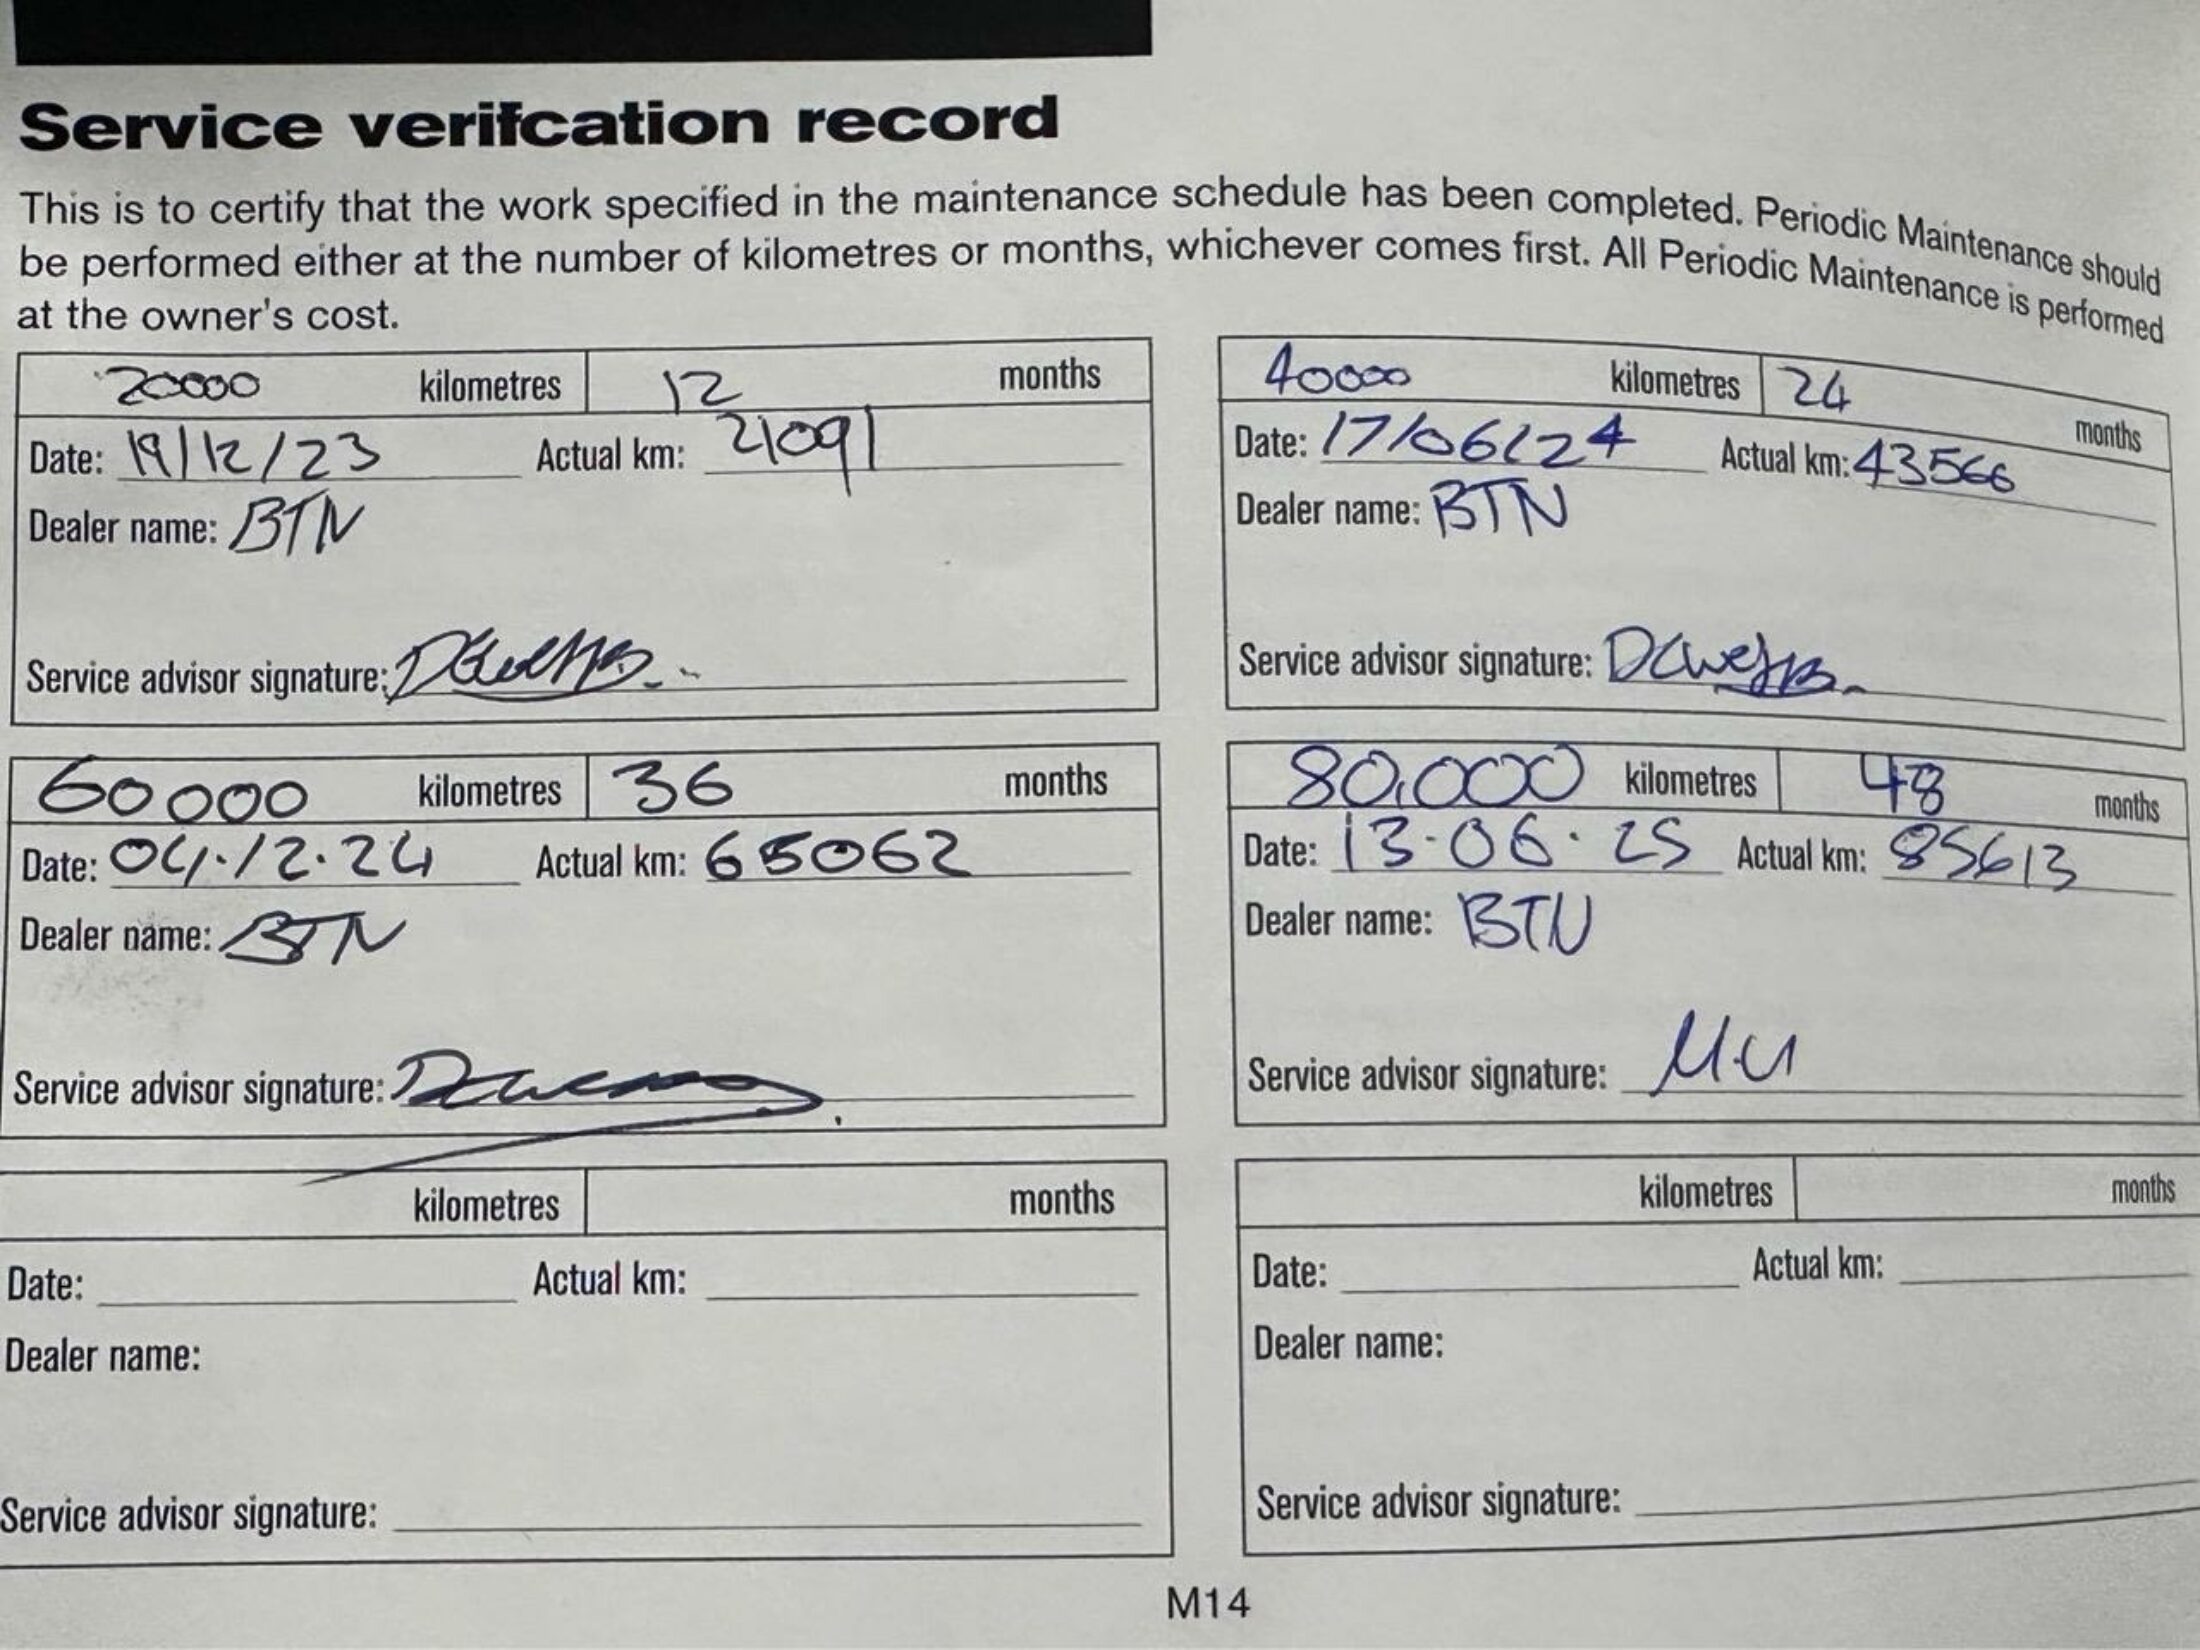 Service verifcation record
This is to certify that the work specified in the maintenance schedule has been completed. Periodic Maintenance should
be performed either at the number of kilometres or months, whichever comes first. All Periodic Maintenance is performed
at the owner's cost.
20000 kilometres 12 months
Date: 19/12/23 Actual km: 21091
Dealer name: BTN
Service advisor signature:
40000 kilometres 24 months
Date: 17/06/24 Actual km: 43566
Dealer name: BTN
Service advisor signature:
60000 kilometres 36 months
Date: 04.12.24 Actual km: 65062
Dealer name: BTN
Service advisor signature:
80,000 kilometres 48 months
Date: 13.06.25 Actual km: 85613
Dealer name: BTN
Service advisor signature:
kilometres months
Date: Actual km:
Dealer name:
Service advisor signature:
kilometres months
Date: Actual km:
Dealer name:
Service advisor signature:
M14